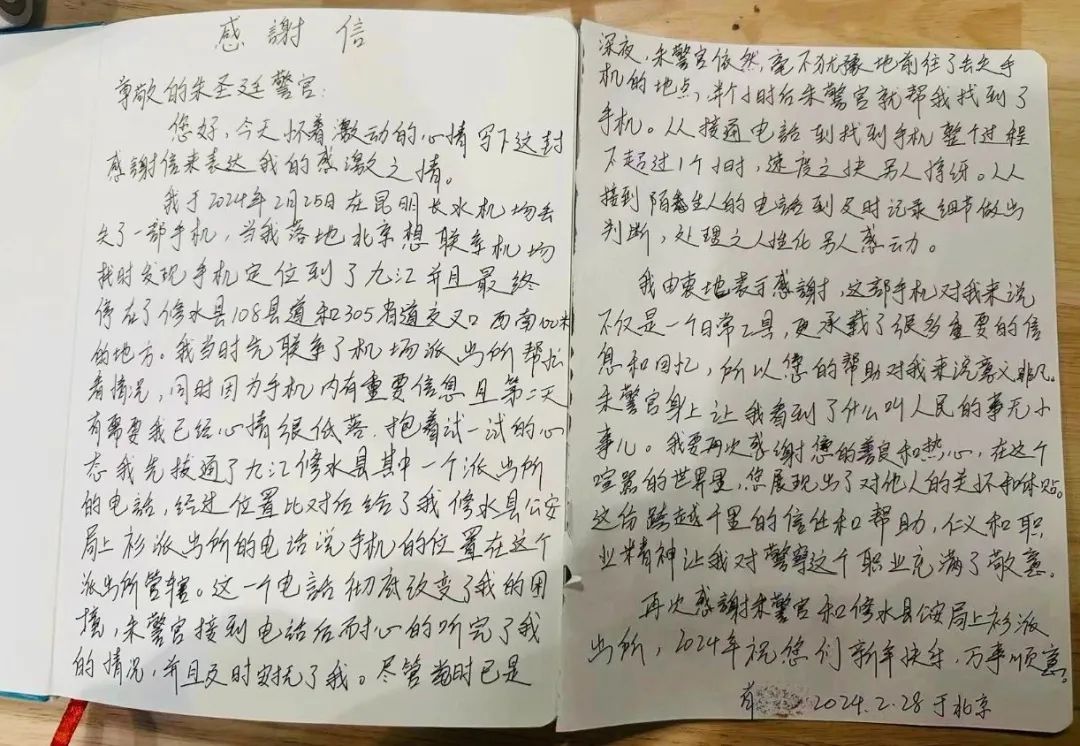 感謝信
尊敬的朱圣廷警官：
您好，今天怀着激动的心情写下这封
感謝信来表达我的感激之情。
我于2024年2月25日在昆明长水机场丢
失了一部手机，当我落地北京想联系机场
找时发现手机定位到了九江并且最终
停在了修水县108县道和305省道交叉口西南100米
的地方。我当时先联系了机场派出所帮忙
看情况，同时因为手机内有重要信息且第二天
有需要我已经心情很低落，抱着试一试的心
态我先拨通了九江修水县其中一个派出所
的电话，经过位置比对后给了我修水县公安
局上衫派出所的电话说手机的位置在这个
派出所管辖。这一个电話彻底改变了我的困
境，朱警官接到电话后耐心的听完了我
的情况，并且及时安抚了我。尽管当时已是
深夜，朱警官依然，毫不犹豫地前往了丢失手
机的地点，半个小时后朱警官就帮我找到了
手机。从接通电話到找到手机整个过程
不超过1个小时，速度之快另人惊讶。从
接到陌生人的电話到及时记录细节做出
判断，处理之人性化另人感动。
我由衷地表示感謝，这部手机对我来说
不仅是一个日常工具，更承载了很多重要的信
息和回忆，所以您的帮助对我来说意义非凡。
朱警官身上让我看到了什么叫人民的事无小
事儿。我要再次感谢您的善良和热心，在这个
喧嚣的世界里，您展现出了对他人的关怀和体贴。
这份跨越千里的信任和帮助，仁义和职
业精神让我对警察这个职业充满了敬意。
再次感謝朱警官和修水县公安局上衫派
出所，2024年祝您们新年快乐，万事顺意。
2024.2.28于北京